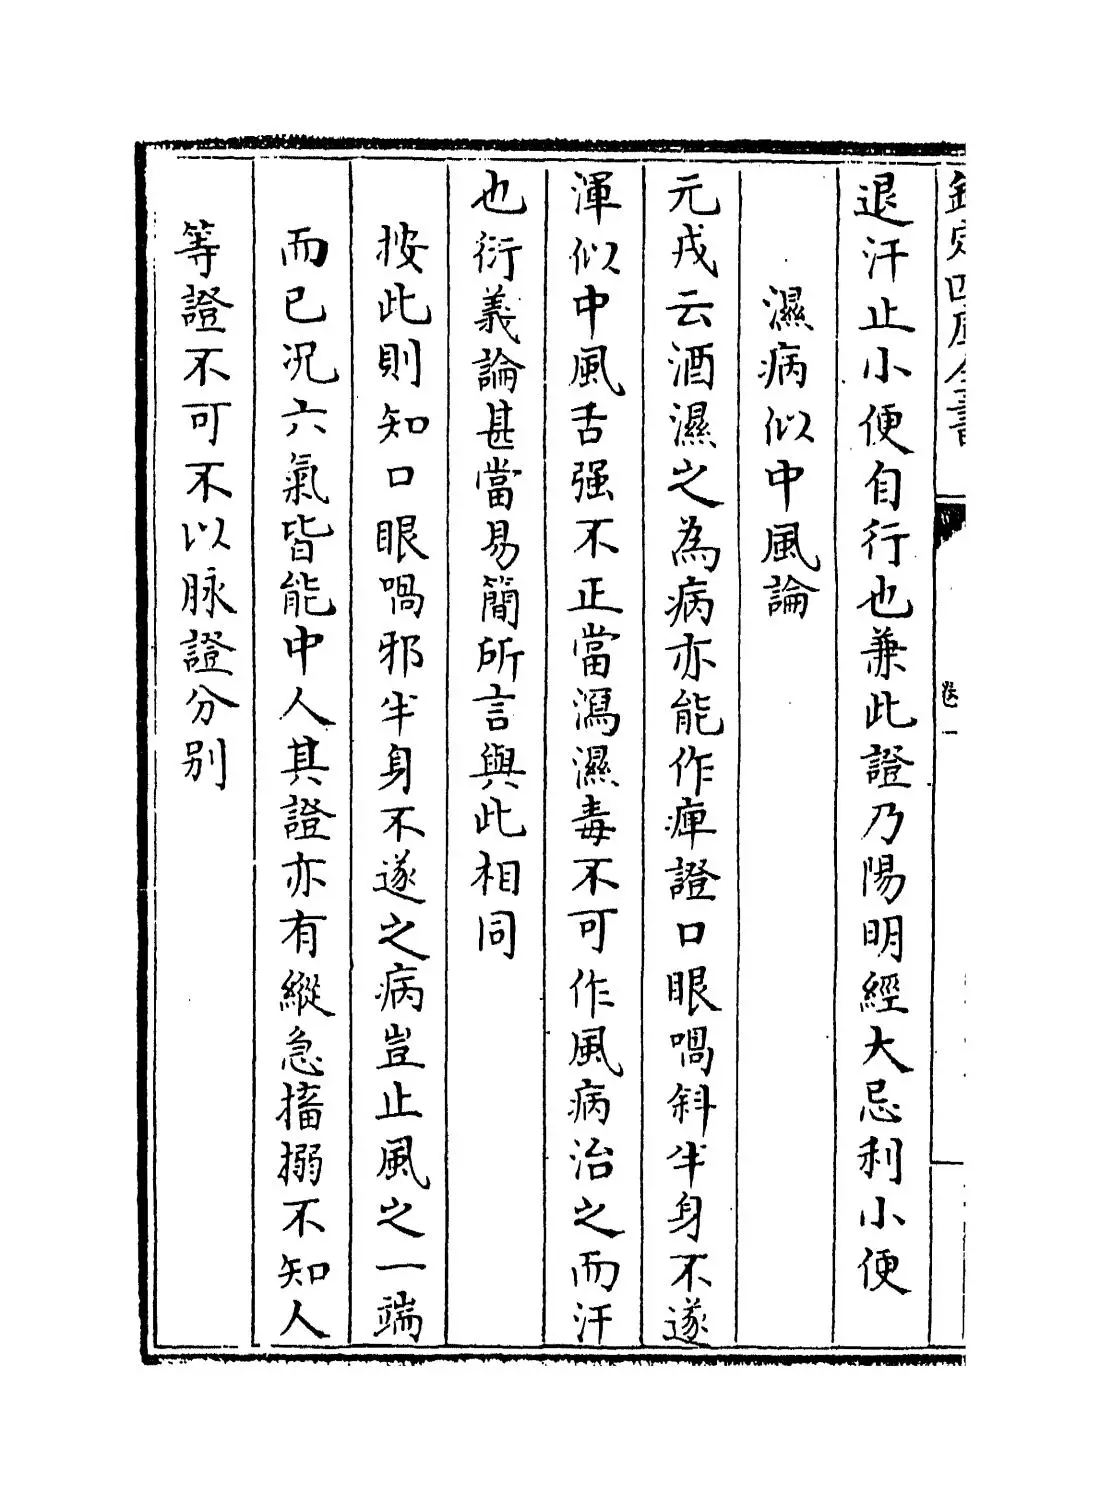 欽定四庫全書
卷一
退汗止小便自行也兼此證乃陽明經大忌利小便
濕病似中風論
元戎云酒濕之為病亦能作痺證口眼喎斜半身不遂
渾似中風舌强不正當瀉濕毒不可作風病治之而汗
也衍義論甚當易簡所言與此相同
按此則知口眼喎邪半身不遂之病豈止風之一端
而已况六氣皆能中人其證亦有縱急搐搦不知人
等證不可不以脉證分别